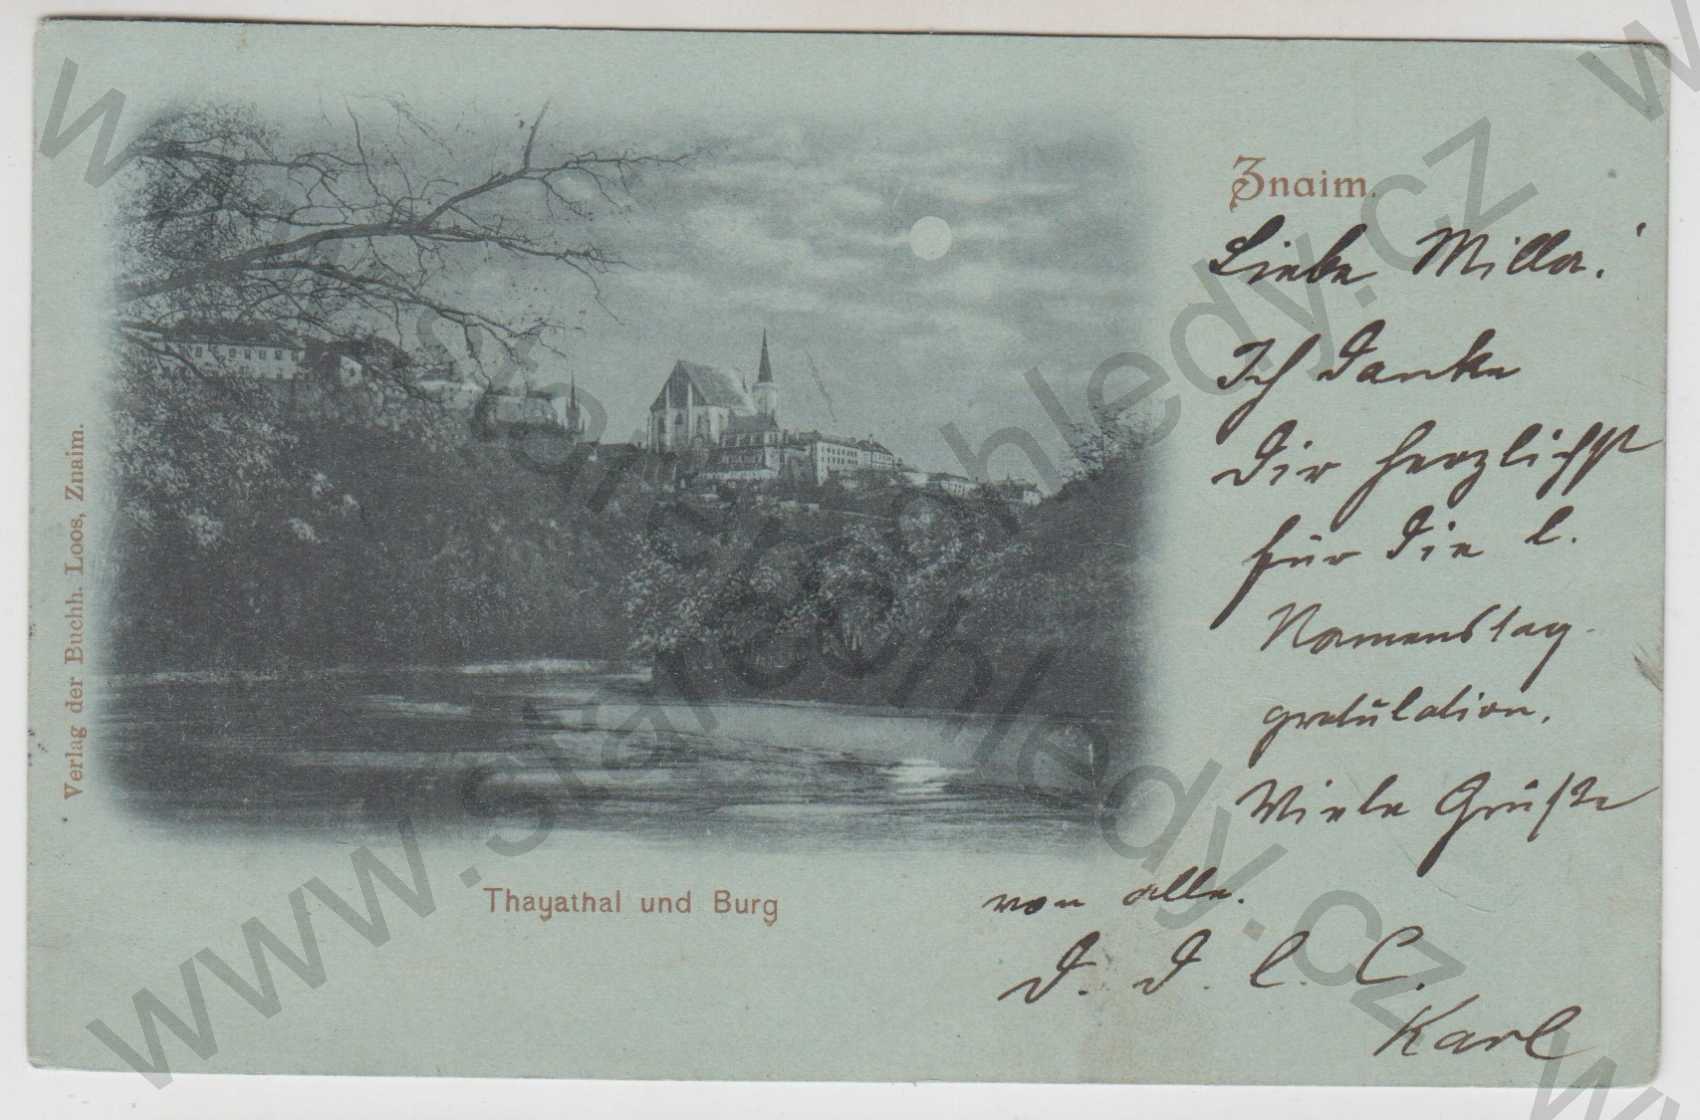 Znaim.
Liebe Milla!
Ich danke
Dir herzlichst
für die l.
Namenstag
gratulation.
Viele Grüße
von alle.
D. D. l. C.
Karl
Thayathal und Burg
Verlag der Buchh. Loos, Znaim.
www.starepohledy.cz
www.starepohledy.cz